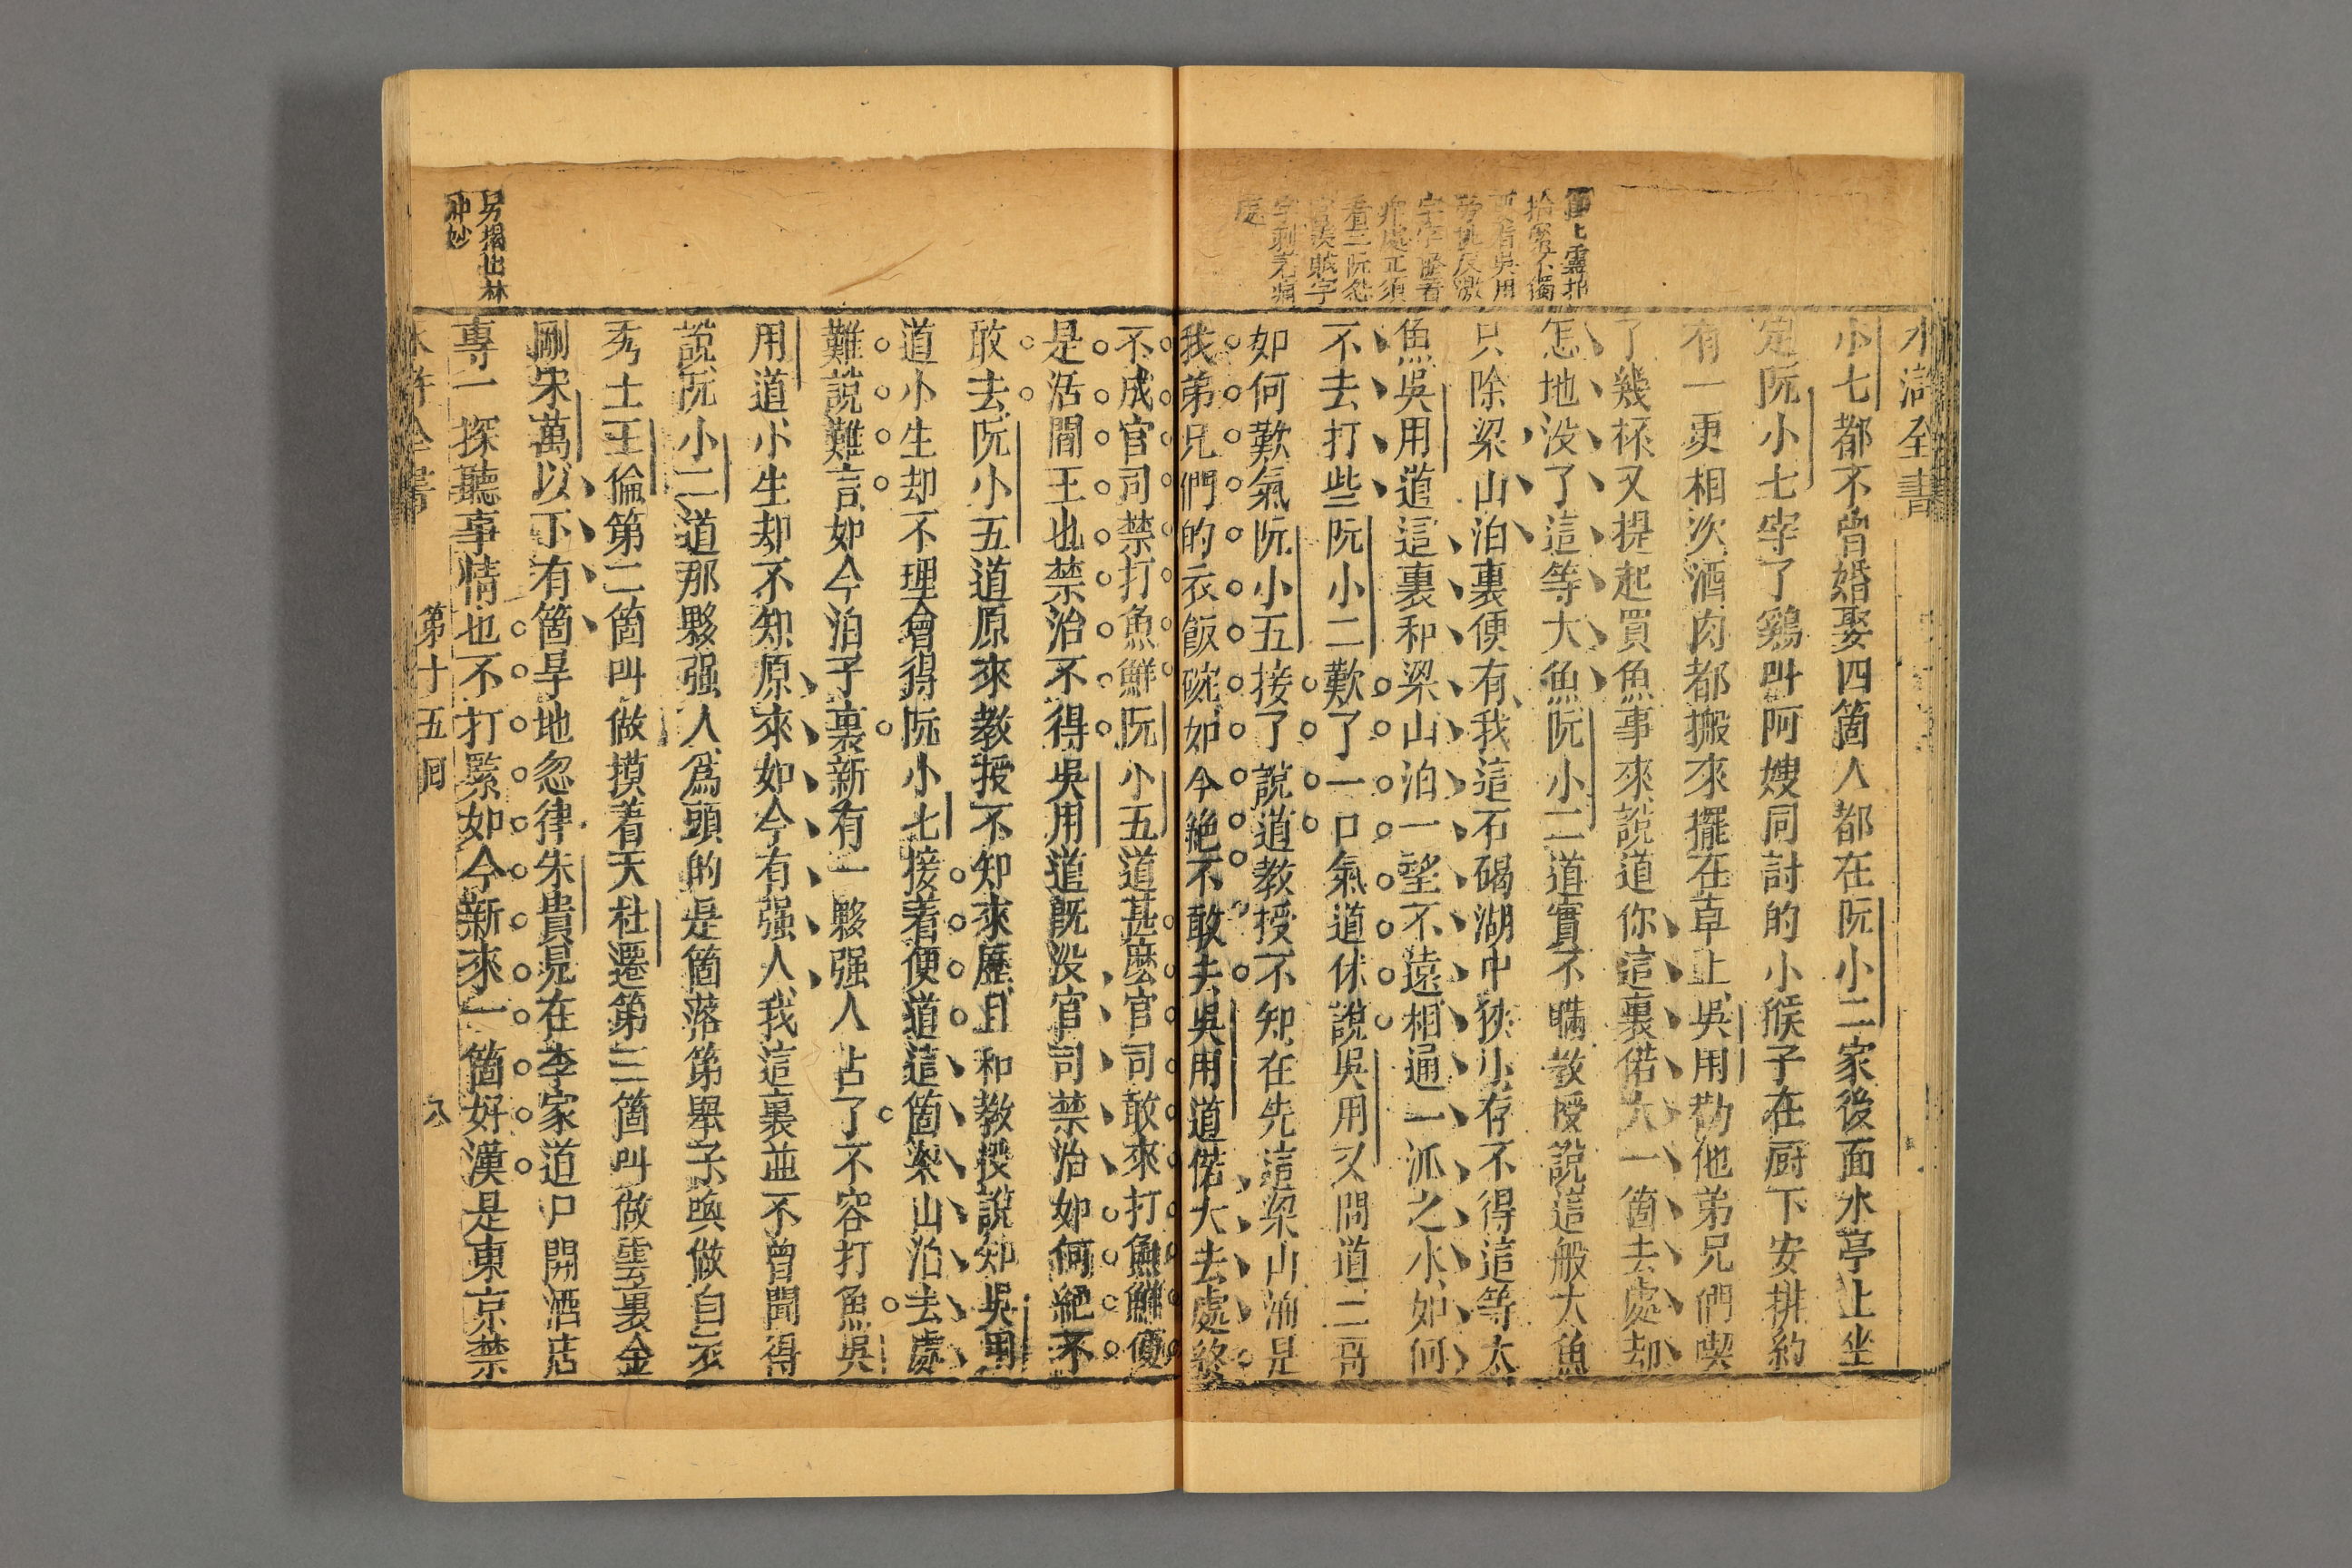 水滸全書
小七都不曾婚娶四箇人都在阮小二家後面水亭上坐
定阮小七宰了鷄叫阿嫂同討的小猴子在厨下安排約
有一更相次酒肉都搬來擺在卓上吳用勸他弟兄們喫
了幾杯又提起買魚事來說道你這裏偌大一箇去處却
怎地没了這等大魚阮小二道實不瞞教授說這般大魚
只除梁山泊裏便有我這石碣湖中狹小存不得這等大
魚吳用道這裏和梁山泊一望不遠相通一派之水如何
不去打些阮小二歎了一口氣道休說吳用又問道二哥
如何歎氣阮小五接了說道教授不知在先這梁山泊是
我弟兄們的衣飯碗如今絶不敢去吳用道偌大去處終
不成官司禁打魚鮮阮小五道甚麽官司敢來打魚鮮便
是活閻王也禁治不得吳用道既没官司禁治如何絶不
敢去阮小五道原來教授不知來歷且和教授說知吳用
道小生却不理會得阮小七接着便道這箇梁山泊去處
難說難言如今泊子裏新有一夥强人占了不容打魚吳
用道小生却不知原來如今有强人我這裏並不曾聞得
說阮小二道那夥强人爲頭的是箇落第舉子喚做白衣
秀士王倫第二箇叫做摸着天杜遷第三箇叫做雲裏金
剛宋萬以下有箇旱地忽律朱貴見在李家道口開酒店
專一探聽事情也不打緊如今新來一箇好漢是東京禁
水滸全書 第十五囘 八
上
拾零不獨
看吳用
旁挑反激
字字
處正須
看三阮怨
官羨賊字
字刺
處
另揭出林
冲妙